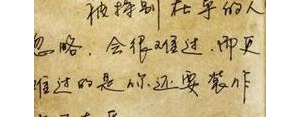 被特别在乎的人
忽略，会很难过，而更
难过的是你还要装作